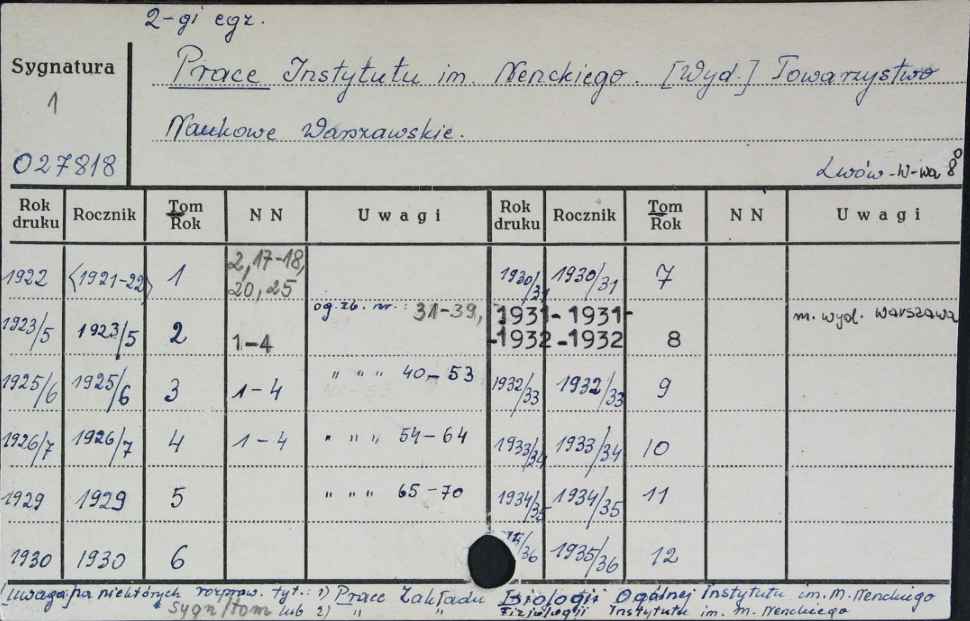 2-gi egz.
Sygnatura
1
027818
Prace Instytutu im. Nenckiego. [Wyd.] Towarzystwo
Naukowe Warszawskie.
Lwów - W-wa 8°
Rok druku Rocznik Tom Rok NN Uwagi Rok druku Rocznik Tom Rok NN Uwagi
1922 <1921-22> 1 2, 17-18, 20, 25 1930/31 1930/31 7
1923/5 1923/5 2 1-4 og. zb. nr.: 31-39, 1931-1932 1931-1932 8 m. wyd. Warszawa
1925/6 1925/6 3 1-4 " " " 40-53 1932/33 1932/33 9
1926/7 1926/7 4 1-4 " " " 54-64 1933/34 1933/34 10
1929 1929 5 " " " 65-70 1934/35 1934/35 11
1930 1930 6 /36 1935/36 12
(uwaga na niektórych rozpraw. tyt.: 1) Prace Zakładu Biologii Ogólnej Instytutu im. M. Nenckiego
* Sygn/tom lub 2) " " Fizjologii Instytutu im. M. Nenckiego